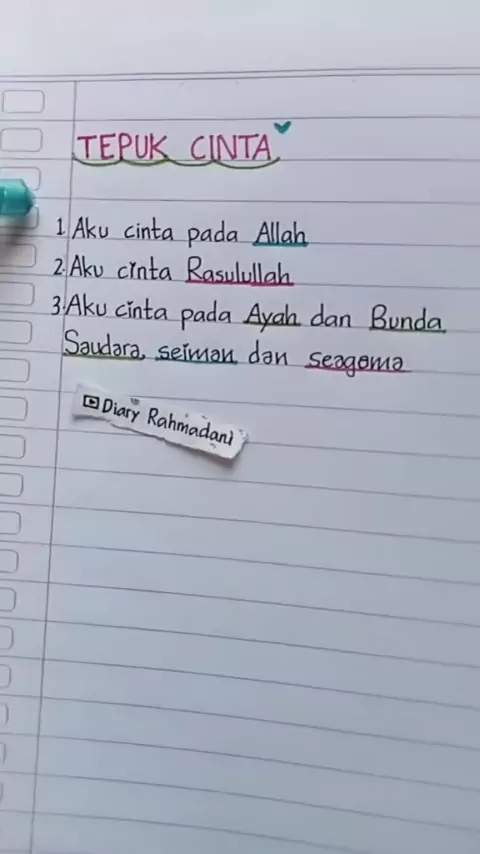 TEPUK CINTA
1. Aku cinta pada Allah
2. Aku cinta Rasulullah
3. Aku cinta pada Ayah dan Bunda
Saudara, seiman dan seagama
Diary Rahmadani